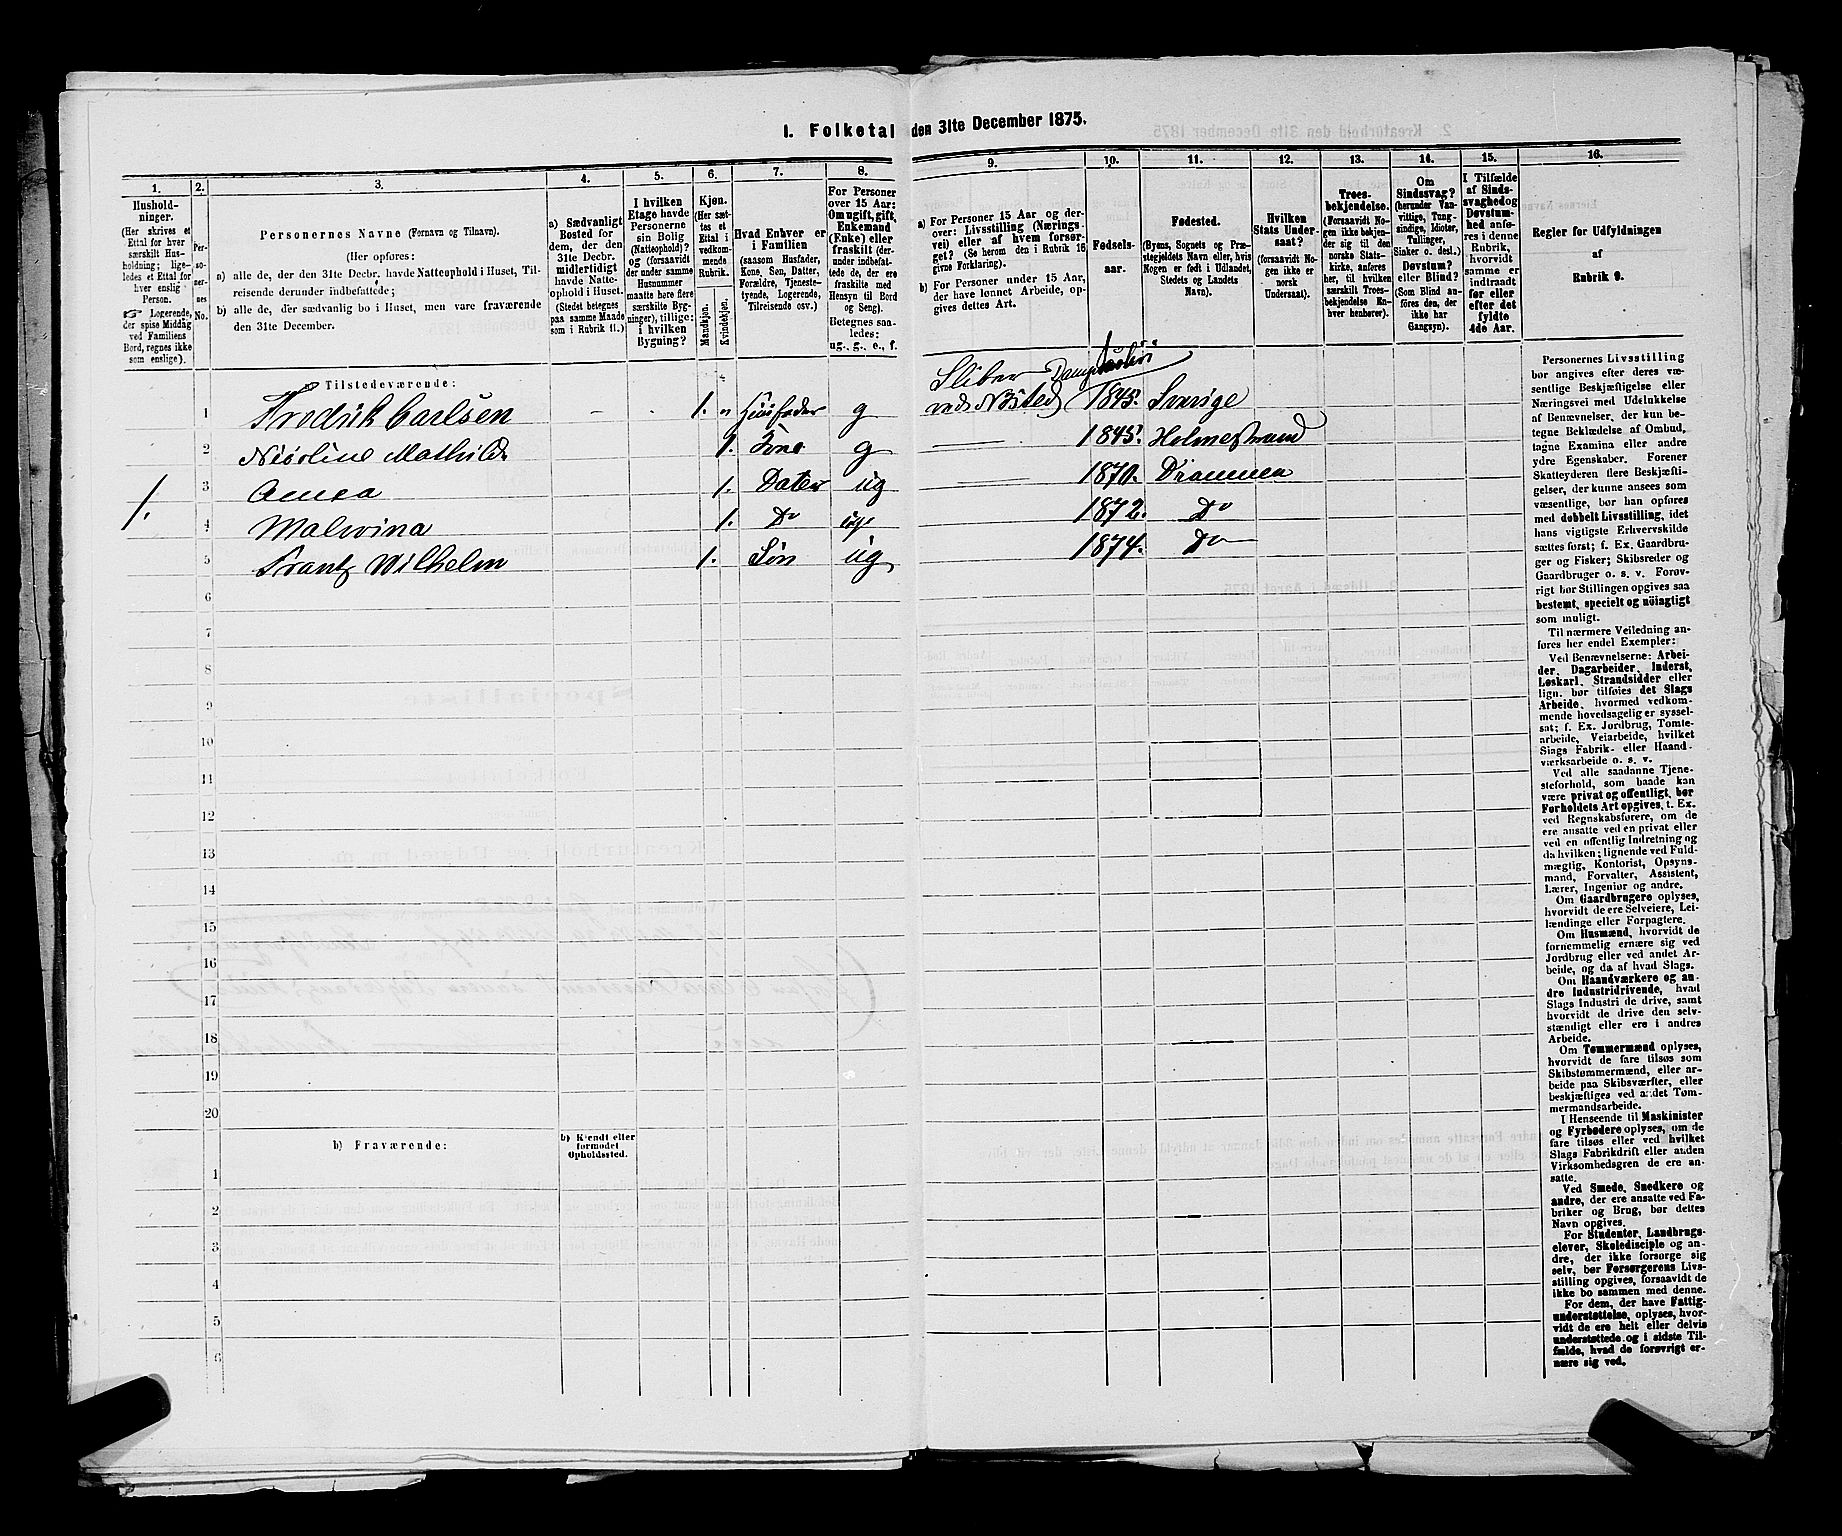 I. Folketal den 31te December 1875.
1.
2.
3.
4.
5.
6.
7.
8.
9.
10.
11.
12.
13.
14.
15.
16.
Hushold-
ninger.
(Her skrives et
Ettal for hver
særskilt Hus-
holdning; lige-
ledes et Ettal for
hver enslig
Person.
☞ Logerende,
der spise Middag
ved Familiens
Bord, regnes ikke
som enslige).
Per-
so-
ner-
nes
No.
Personernes Navne (Fornavn og Tilnavn).
(Her opføres:
a) alle de, der den 31te Decbr. havde Natteophold i Huset, Til-
reisende derunder indbefattede;
b) alle de, der sædvanlig bo i Huset, men vare fraværende
den 31te December.
a) Sædvanligt
Bosted for
dem, der den
31te Decbr.
midlertidigt
havde Natte-
ophold i Huset.
(Stedet betegnes
paa samme Maade
som i Rubrik 11.)
I hvilken
Etage havde
Personerne
sin Bolig
(Natteophold)?
og (forsaavidt
der under samme
Husnummer
maatte høre flere
særskilte Byg-
ninger), tillige:
i hvilken
Bygning?
Kjøn.
(Her sæt-
tes et
Ettal i
vedkom-
mende
Rubrik.
Mandkjøn.
Kvindekjøn.
Hvad Enhver er
i Familien
(saasom Husfader,
Kone, Søn, Datter,
Forældre, Tjeneste-
tyende, Logerende,
Tilreisende osv.)
For Personer
over 15 Aar:
Om ugift, gift,
Enkemand
(Enke) eller
fraskilt (der-
under indbefat-
tede de, der ere
fraskilte med
Hensyn til Bord
og Seng).
Betegnes saa-
ledes:
ug., g., e., f.
a) For Personer 15 Aar og der-
over: Livsstilling (Nærings-
vei) eller af hvem forsør-
get? (Se herom den i Rubrik 16
givne Forklaring).
b) For Personer under 15 Aar,
der have lønnet Arbeide, op-
gives dettes Art.
Fødsels-
aar.
Fødested.
(Byens, Sognets og Præ-
stegjeldets Navn eller, hvis
Nogen er født i Udlandet,
Stedets og Landets
Navn).
Hvilken
Stats Under-
saat?
(forsaavidt No-
gen ikke er
norsk
Undersaat).
Troes-
bekjendelse.
(Forsaavidt No-
gen ikke bekjen-
der sig til den
norske Stats-
kirke, anføres
her, til hvilken
særskilt Troes-
bekjendelse En-
hver henhører).
Om
Sindssvag?
(herunder Van-
vittige, Tung-
sindige, Idioter,
Tullinger,
Sinker o. desl.).
Døvstum?
eller Blind?
(Som Blind an-
føres den, der
ikke har
Gangsyn).
I Tilfælde
af Sinds-
svaghed og
Døvstum-
hed anfø-
res i denne
Rubrik,
hvorvidt
samme er
indtraadt
før eller
efter det
fyldte
4de Aar.
Regler for Udfyldningen
af
Rubrik 9.
Tilstedeværende:
1 Fredrik Carlsen - - 1. „ Husfader g Sliber ved Nøsted 1845. Sverige
2 Nicoline Mathilde 1. Kone g — 1845. Holmestrand
1.
3 Anna 1. Datter ug — 1870. Drammen
4 Malvina 1. Do ug 1872. Do
5 Frantz Wilhelm 1. Søn ug 1874. Do
6
7
8
9
10
11
12
13
14
15
16
17
18
19
20
b) Fraværende:
b) Kjendt eller
formodet
Opholdssted.
1
2
3
4
5
6
Personernes Livsstilling
bør angives efter deres væ-
sentlige Beskjæftigelse eller
Næringsvei med Udelukkelse
af Benævnelser, der kun be-
tegne Beklædelse af Ombud,
tagne Examina eller andre
ydre Egenskaber. Forener
Skatteyderen flere Beskjæfti-
gelser, der kunne ansees som
væsentlige, bør han opføres
med dobbelt Livsstilling, idet
hans vigtigste Erhvervskilde
sættes først; f. Ex. Gaardbru-
ger og Fisker; Skibsreder og
Gaardbruger o. s. v. Forøv-
rigt bør Stillingen opgives saa
bestemt, specielt og nøiagtigt
som muligt.
Til nærmere Veiledning an-
føres her endel Exempler:
Ved Benævnelserne: Arbei-
der, Dagarbeider, Inderst,
Løskarl, Strandsidder eller
lign. bør tilføies det Slags
Arbeide, hvormed vedkom-
mende hovedsagelig er syssel-
sat; f. Ex. Jordbrug, Tomte-
arbeide, Veiarbeide, hvilket
Slags Fabrik- eller Haand-
værksarbeide o. s. v.
Ved alle saadanne Tjene-
steforhold, som baade kan
være privat og offentligt, bør
Forholdets Art opgives, t. Ex.
ved Regnskabsførere, om de
ere ansatte ved en privat eller
ved en offentlig Indretning og
da hvilken; lignende ved Fuld-
mægtig, Kontorist, Opsyns-
mand, Forvalter, Assistent,
Lærer, Ingeniør og andre.
Om Gaardbrugere oplyses,
hvorvidt de ere Selveiere, Lei-
lændinge eller Forpagtere.
Om Husmænd, hvorvidt de
fornemmelig ernære sig ved
Jordbrug eller ved andet Ar-
beide, og da af hvad Slags.
Om Haandværkere og an-
dre Industridrivende, hvad
Slags Industri de drive, samt
hvorvidt de drive den selv-
stændigt eller ere i andres
Arbeide.
Om Tømmermænd oplyses,
hvorvidt de fare tilsøs som
Skibstømmermænd, eller ar-
beide paa Skibsværfter, eller
beskjæftiges ved andet Tøm-
mermandsarbeide.
I Henseende til Maskinister
og Fyrbødere oplyses, om de
fare tilsøs eller ved hvilket
Slags Fabrikdrift eller anden
Virksomhedsgren de ere an-
satte.
Ved Smede, Snedkere og
andre, der ere ansatte ved Fa-
briker og Brug, bør dettes
Navn opgives.
For Studenter, Landbrugs-
elever, Skoledisciple og an-
dre, der ikke forsørge sig
selv, bør Forsørgerens Livs-
stilling opgives, forsaavidt de
ikke bo sammen med denne.
For dem, der have Fattig-
understøttelse, oplyses, hvor-
vidt de ere helt eller delvis
understøttede og i sidste Til-
fælde, hvad de forøvrigt er-
nære sig ved.